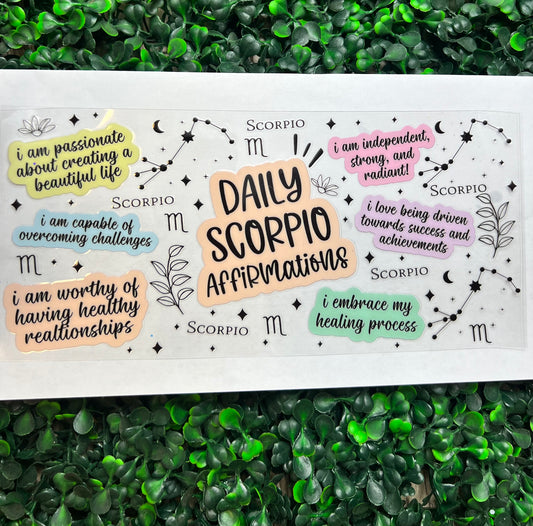 i am passionate
about creating a
beautiful life
SCORPIO
♏
SCORPIO
i am capable of
overcoming challenges
♏
♏
i am worthy of
having healthy
realtionships
SCORPIO
DAILY
SCORPIO
AFFIRMATIONS
i am independent,
strong, and
radiant!
SCORPIO
♏
i love being driven
towards success and
achievements
SCORPIO
i embrace my
healing process
♏
♏